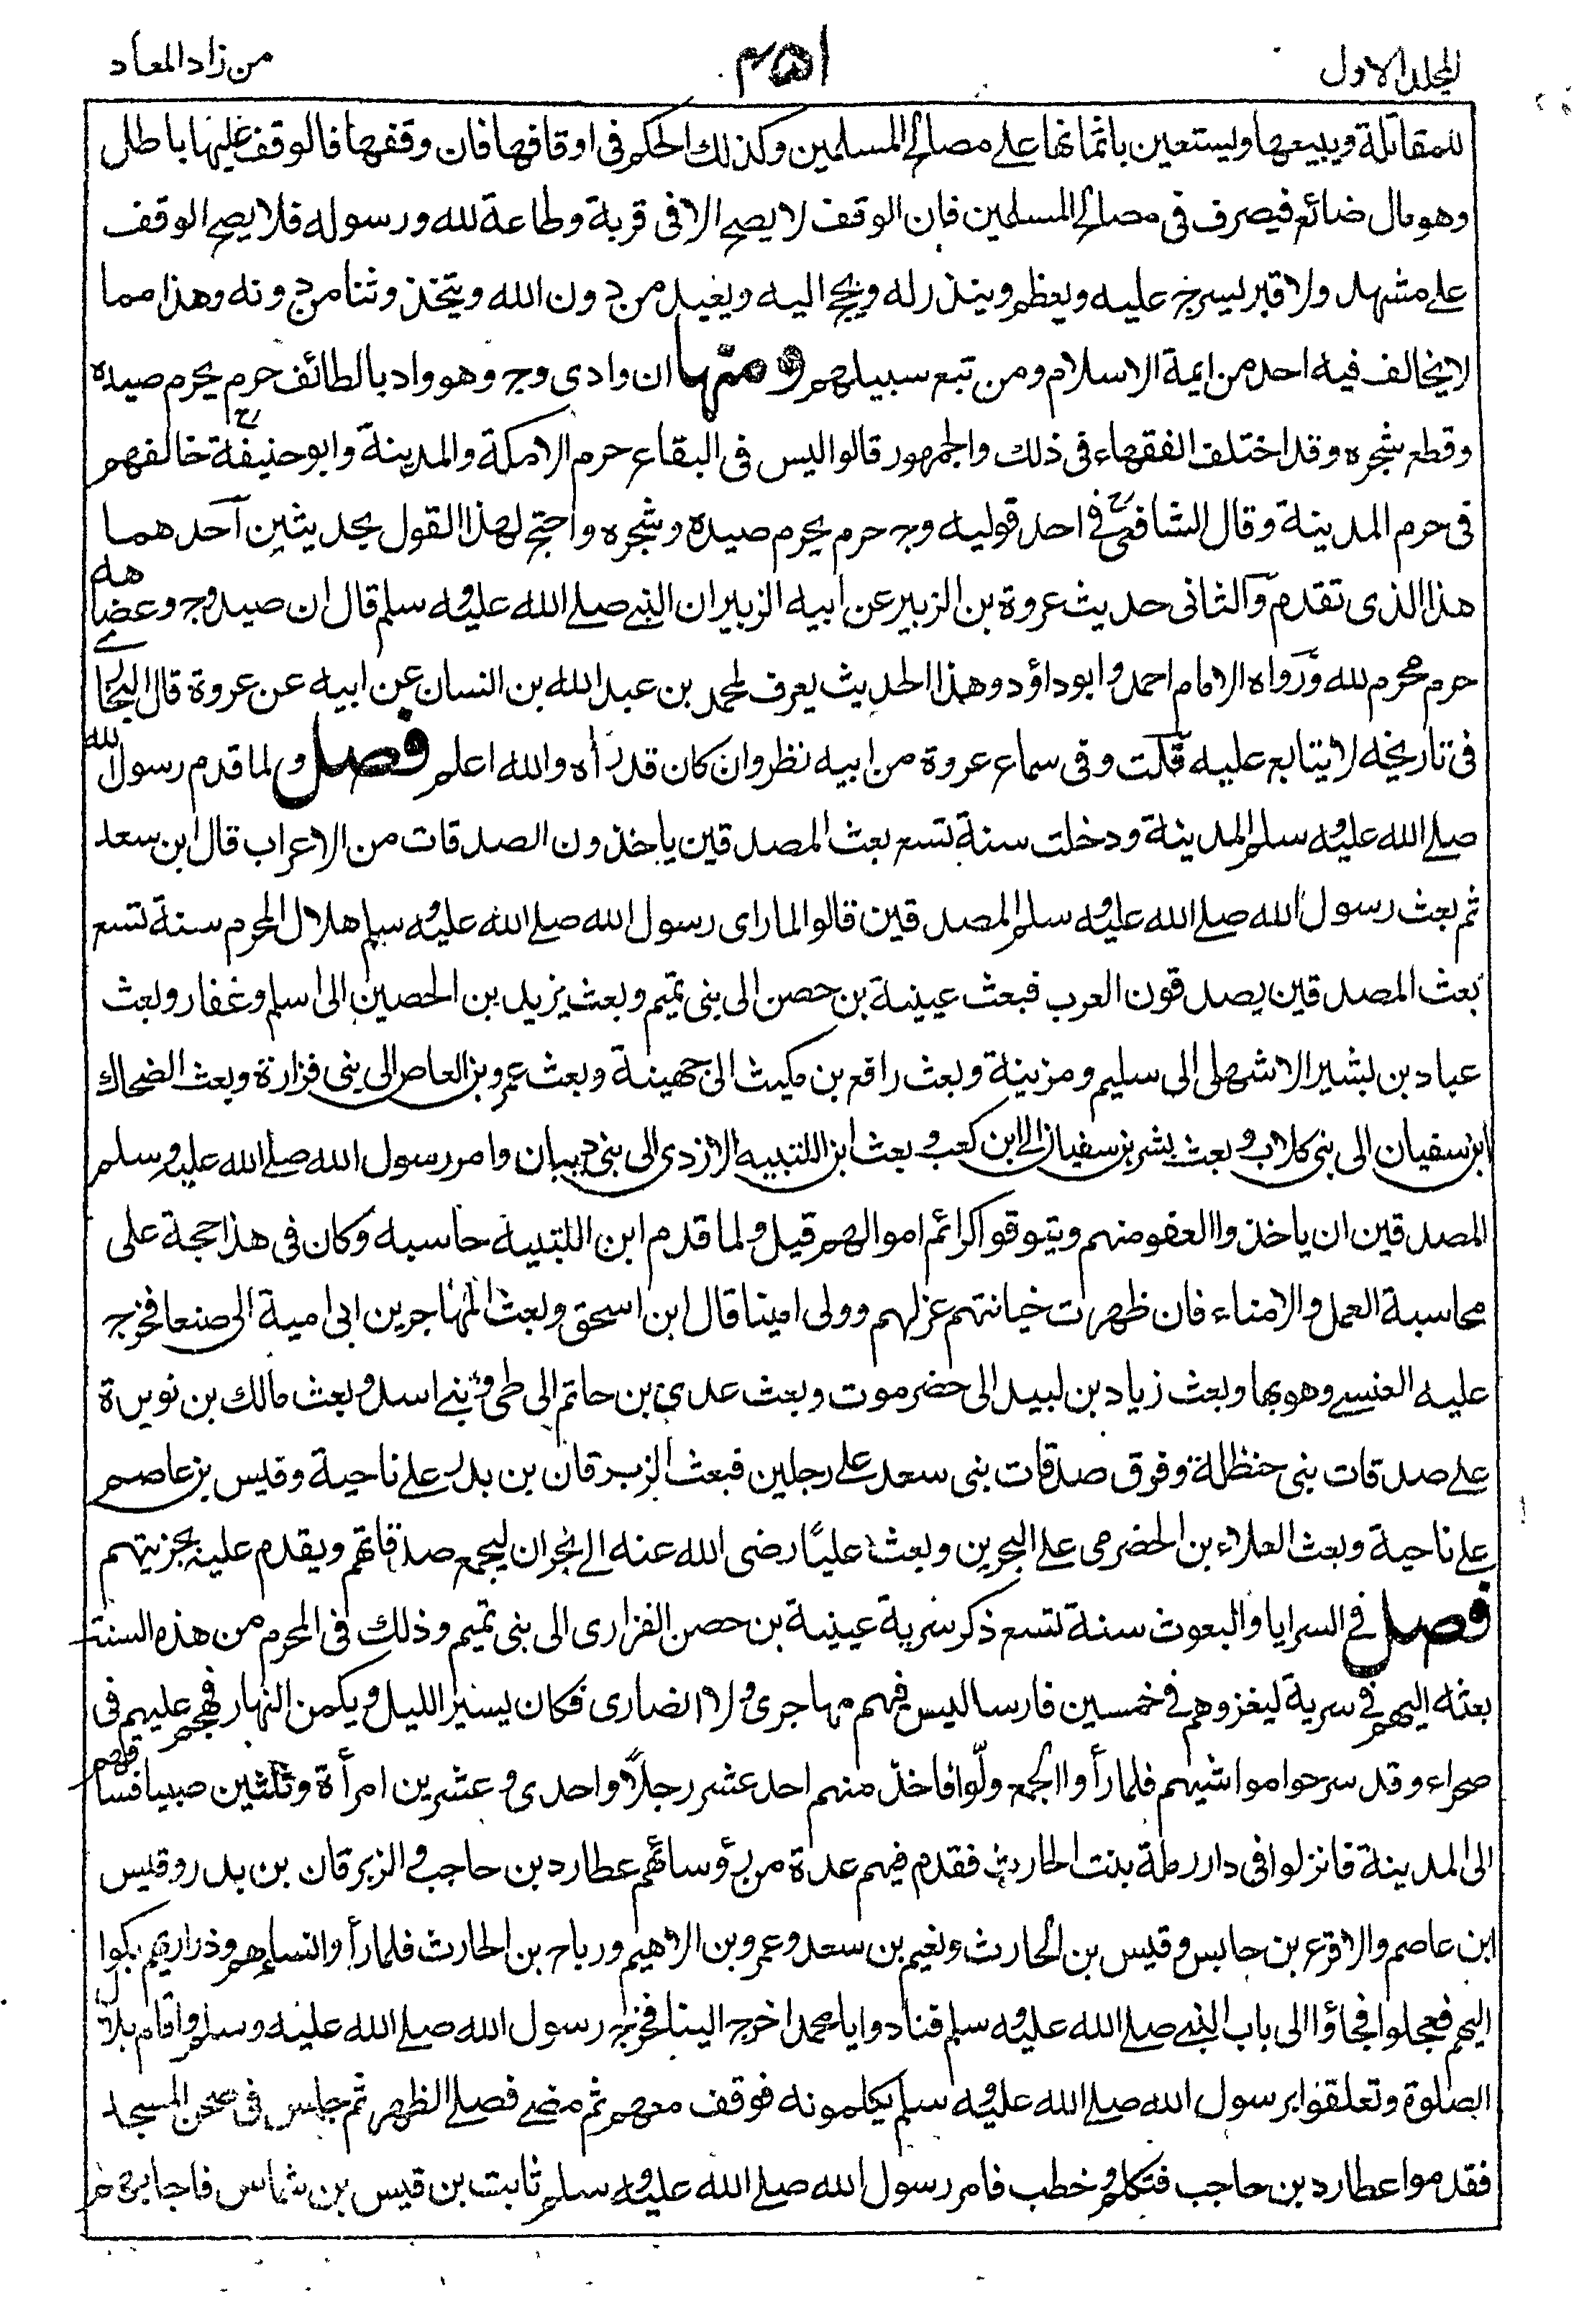 المجلد الاول
٤٥١
من زاد المعاد
للمقاتلة ويبيعها ويستعين باثمانها على مصالح المسلمين وكذلك الحكم فى اوقافها فان وقفها فالوقف عليها باطل
وهو مال ضائع فيصرف فى مصالح المسلمين فان الوقف لا يصح الا فى قربة وطاعة لله ورسوله فلا يصح الوقف
على مشهد ولا قبر يسرج عليه ويعظم وينذر له ويحج اليه ويعبد من دون الله ويتخذ وثنا من دونه وهذا مما
لا يخالف فيه احد من ايمة الاسلام ومن تبع سبيلهم ومنها ان وادى وج وهو واد بالطائف حرم يحرم صيده
وقطع شجره وقد اختلف الفقهاء فى ذلك والجمهور قالوا ليس فى البقاع حرم الا مكة والمدينة وابو حنيفة رح خالفهم
فى حرم المدينة وقال الشافعى رح فى احد قوليه وج حرم يحرم صيده وشجره واحتج لهذا القول بحديثين احدهما
هذا الذى تقدم والثانى حديث عروة بن الزبير عن ابيه الزبير ان النبى صلى الله عليه وسلم قال ان صيد وج وعضاهه
حرم محرم لله ورواه الامام احمد وابو داؤد وهذا الحديث يعرف لمحمد بن عبد الله بن انسان عن ابيه عن عروة قال البخارى
فى تاريخه لا يتابع عليه قلت وفى سماع عروة من ابيه نظر وان كان قد رأه والله اعلم فصل ولما قدم رسول الله
صلى الله عليه وسلم المدينة ودخلت سنة تسع بعث المصدقين ياخذون الصدقات من الاعراب قال ابن سعد
ثم بعث رسول الله صلى الله عليه وسلم المصدقين قالوا لما راى رسول الله صلى الله عليه وسلم هلال المحرم سنة تسع
بعث المصدقين يصدقون العرب فبعث عيينة بن حصن الى بنى تميم وبعث يزيد بن الحصين الى اسلم وغفار وبعث
عباد بن بشير الاشهلى الى سليم ومزينة وبعث رافع بن مكيث الى جهينة وبعث عمرو بن العاص الى بنى فزارة وبعث الضحاك
ابن سفيان الى بنى كلاب وبعث بشر بن سفيان الى ابن كعب وبعث ابن اللتبيه الازدى الى بنى ذبيان وامر رسول الله صلى الله عليه وسلم
المصدقين ان ياخذوا العفو منهم ويتوقوا كرائم اموالهم قيل ولما قدم ابن اللتبية حاسبه وكان فى هذا حجة على
محاسبة العمل والامناء فان ظهرت خيانتهم عزلهم وولى امينا قال ابن اسحق وبعث المهاجر بن ابى امية الى صنعا فخرج
عليه العنسى وهو بها وبعث زياد بن لبيد الى حضرموت وبعث عدى بن حاتم الى طى وبنى اسد وبعث مالك بن نويرة
على صدقات بنى حنظلة وفرق صدقات بنى سعد على رجلين فبعث الزبرقان بن بدر على ناحية وقيس بن عاصم
على ناحية وبعث العلاء بن الحضرمى على البحرين وبعث عليًا رضى الله عنه الى نجران ليجمع صدقاتهم ويقدم عليه بجزيتهم
فصل فى السرايا والبعوث سنة تسع ذكر سرية عيينة بن حصن الفزارى الى بنى تميم وذلك فى المحرم من هذه السنة
بعثه اليهم فى سرية ليغزوهم فى خمسين فارسا ليس فيهم مهاجرى ولا انصارى فكان يسير الليل ويكمن النهار فهجم عليهم فى
صحراء وقد سرحوا مواشيهم فلما رأوا الجمع ولّوا فاخذ منهم احد عشر رجلًا واحدى وعشرين امرأة وثلثين صبيا فساقهم
الى المدينة فانزلوا فى دار رملة بنت الحارث فقدم فيهم عدة من رؤسائهم عطارد بن حاجب والزبرقان بن بدر وقيس
ابن عاصم والاقرع بن حابس وقيس بن الحارث ونعيم بن سعد وعمرو بن الاهيم ورباح بن الحارث فلما رأوا نساءهم وذراريهم بكوا
اليهم فعجلوا فجاؤا الى باب النبى صلى الله عليه وسلم فنادوا يا محمد اخرج الينا فخرج رسول الله صلى الله عليه وسلم واقام بلال
الصلوة وتعلقوا برسول الله صلى الله عليه وسلم يكلمونه فوقف معهم ثم مضى فصلى الظهر ثم جلس فى صحن المسجد
فقدموا عطارد بن حاجب فتكلم وخطب فامر رسول الله صلى الله عليه وسلم ثابت بن قيس بن شماس فاجابهم